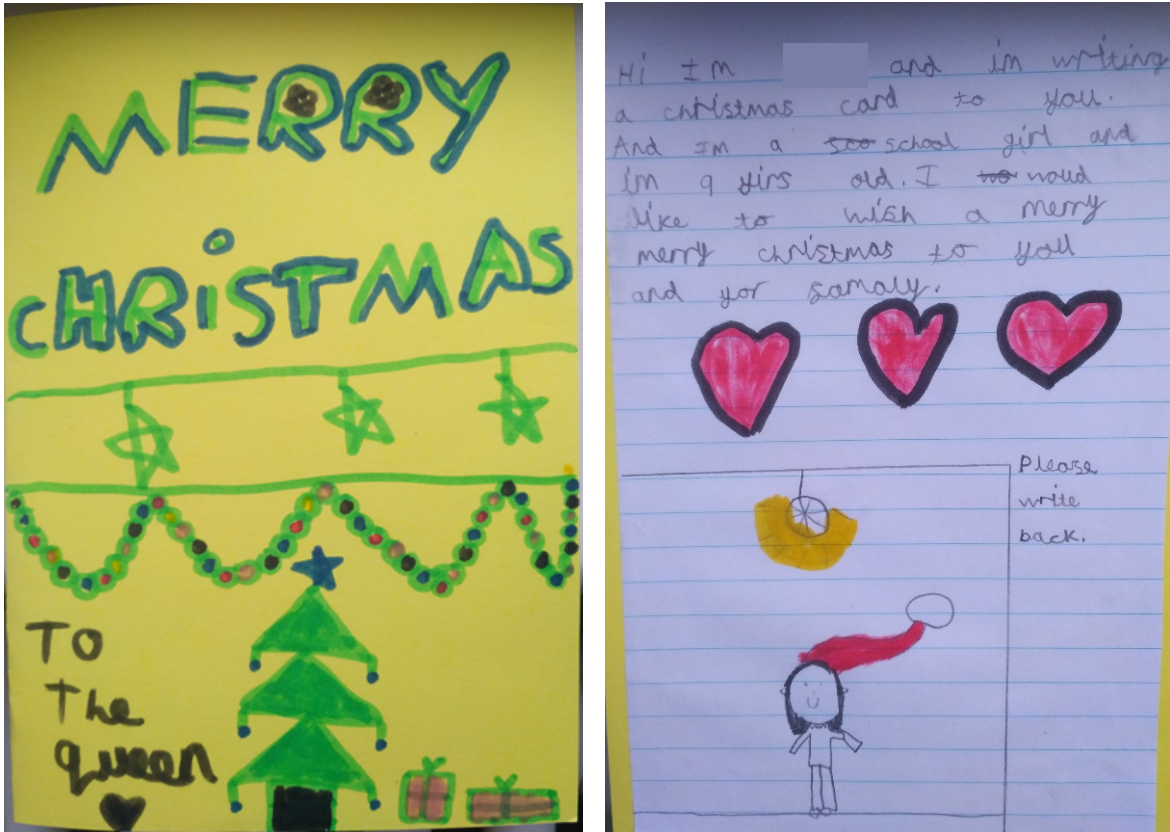 MERRY
CHRiSTMAS
TO
The
queen
Hi Im and im writing
a christmas card to you.
And Im a soo school girl and
im 9 yirs old. I wo woud
like to wish a merry
merry christmas to you
and yor samaly.
Please
write
back.